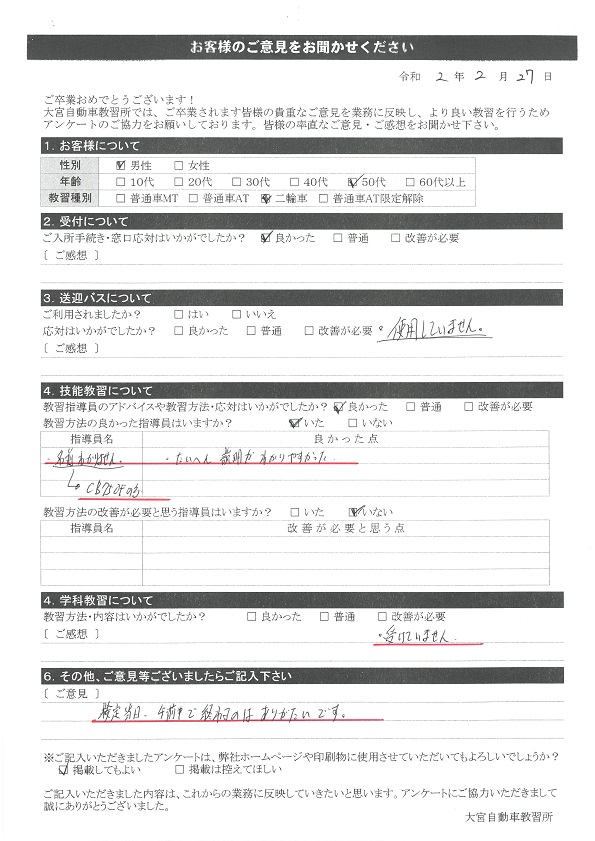 お客様のご意見をお聞かせください
令和 2 年 2 月 27 日
ご卒業おめでとうございます！
大宮自動車教習所では、ご卒業されます皆様の貴重なご意見を業務に反映し、より良い教習を行うため
アンケートのご協力をお願いしております。皆様の率直なご意見・ご感想をお聞かせ下さい。
1. お客様について
性別 ☑ 男性 □ 女性
年齢 □ 10代 □ 20代 □ 30代 □ 40代 ☑ 50代 □ 60代以上
教習種別 □ 普通車MT □ 普通車AT ☑ 二輪車 □ 普通車AT限定解除
2. 受付について
ご入所手続き・窓口応対はいかがでしたか？ ☑ 良かった □ 普通 □ 改善が必要
〔 ご感想 〕
3. 送迎バスについて
ご利用されましたか？ □ はい □ いいえ
応対はいかがでしたか？ □ 良かった □ 普通 □ 改善が必要 。使用していません。
〔 ご感想 〕
4. 技能教習について
教習指導員のアドバイスや教習方法・応対はいかがでしたか？ ☑ 良かった □ 普通 □ 改善が必要
教習方法の良かった指導員はいますか？ ☑ いた □ いない
指導員名 良かった点
・名前わかりません。 ・たいへん 説明が わかりやすかった
CB750Fの方
教習方法の改善が必要と思う指導員はいますか？ □ いた ☑ いない
指導員名 改善が必要と思う点
4. 学科教習について
教習方法・内容はいかがでしたか？ □ 良かった □ 普通 □ 改善が必要
〔 ご感想 〕 ・受けていません。
6. その他、ご意見等ございましたらご記入下さい
〔 ご意見 〕
検定当日、午前中で終わるのは ありがたいです。
※ご記入いただきましたアンケートは、弊社ホームページや印刷物に使用させていただいてもよろしいでしょうか？
☑ 掲載してもよい □ 掲載は控えてほしい
ご記入いただきました内容は、これからの業務に反映していきたいと思います。アンケートにご協力いただきまして
誠にありがとうございました。
大宮自動車教習所